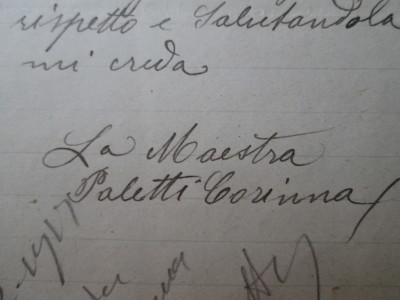 rispetto e Salutandola
mi creda
La Maestra
Paletti Corinna
1917